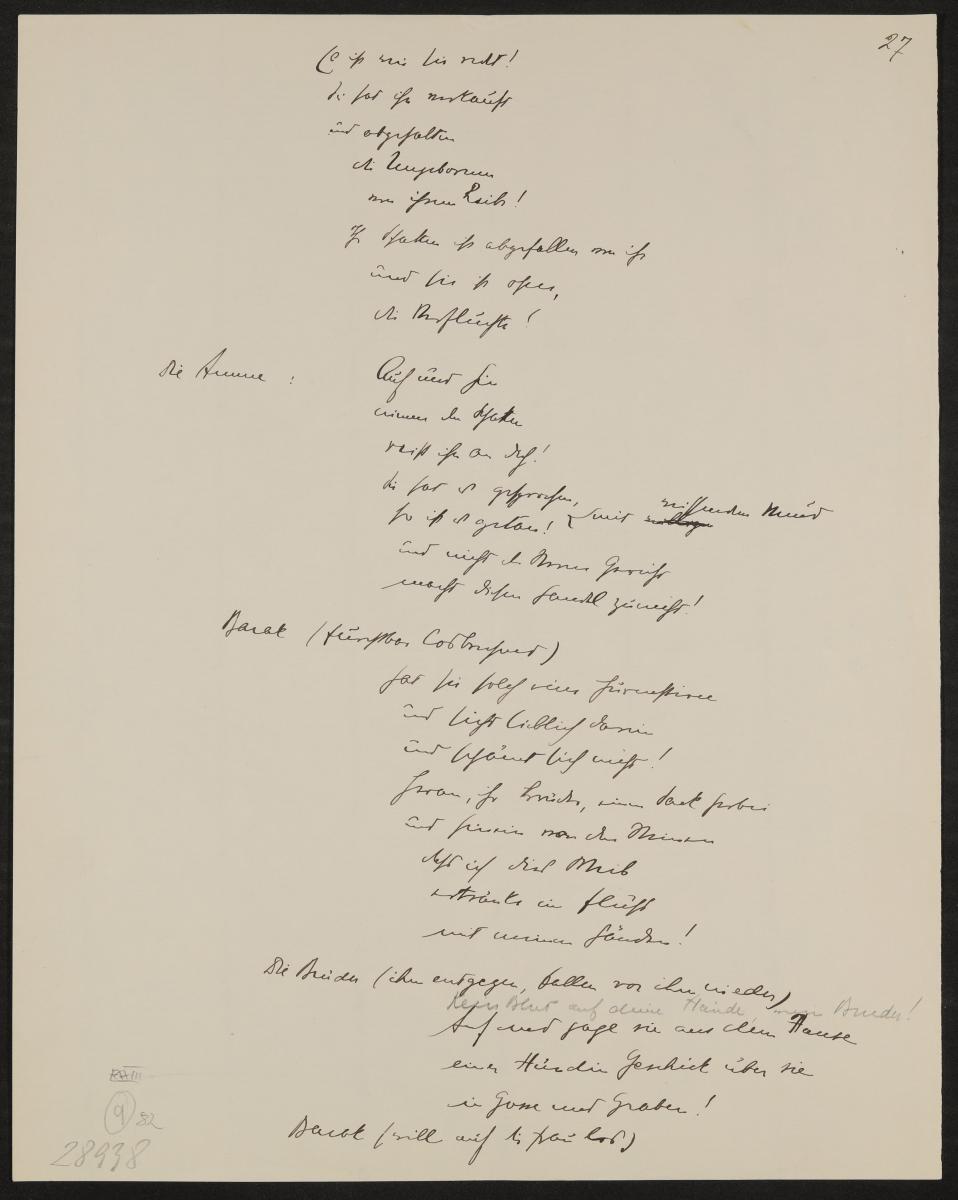 27
Es ist wie sie redet!
Sie hat ihn verkauft
und abgehalten
die Ungeborenen
von ihrem Leib!
Ihr Schatten ist abgefallen von ihr
und sie ist ohne,
die Verfluchte!
Die Amme : Auf und hin
nimm den Schatten
reiß ihn an dich!
Sie hat es gesprochen,
so ist es getan! mit wissendem Mund
und nicht der Sterne Gericht
macht diesen Handel zunicht!
Barak (furchtbar losbrechend)
Hat sie solch eine Hurenstirne
und sieht lieblich darein
und schämt sich nicht!
Heran, ihr Brüder, einen Sack herbei
und hinein von den Steinen
daß ich dies Weib
ertränke im Fluß
mit meinen Händen!
Die Brüder (ihm entgegen, fallen vor ihm nieder)
Kein Blut auf deine Hände, mein Bruder!
Auf und jage sie aus dem Hause
einer Hündin Geschick über sie
in Gosse und Graben!
Barak (will auf die Frau los)
9 82
28938